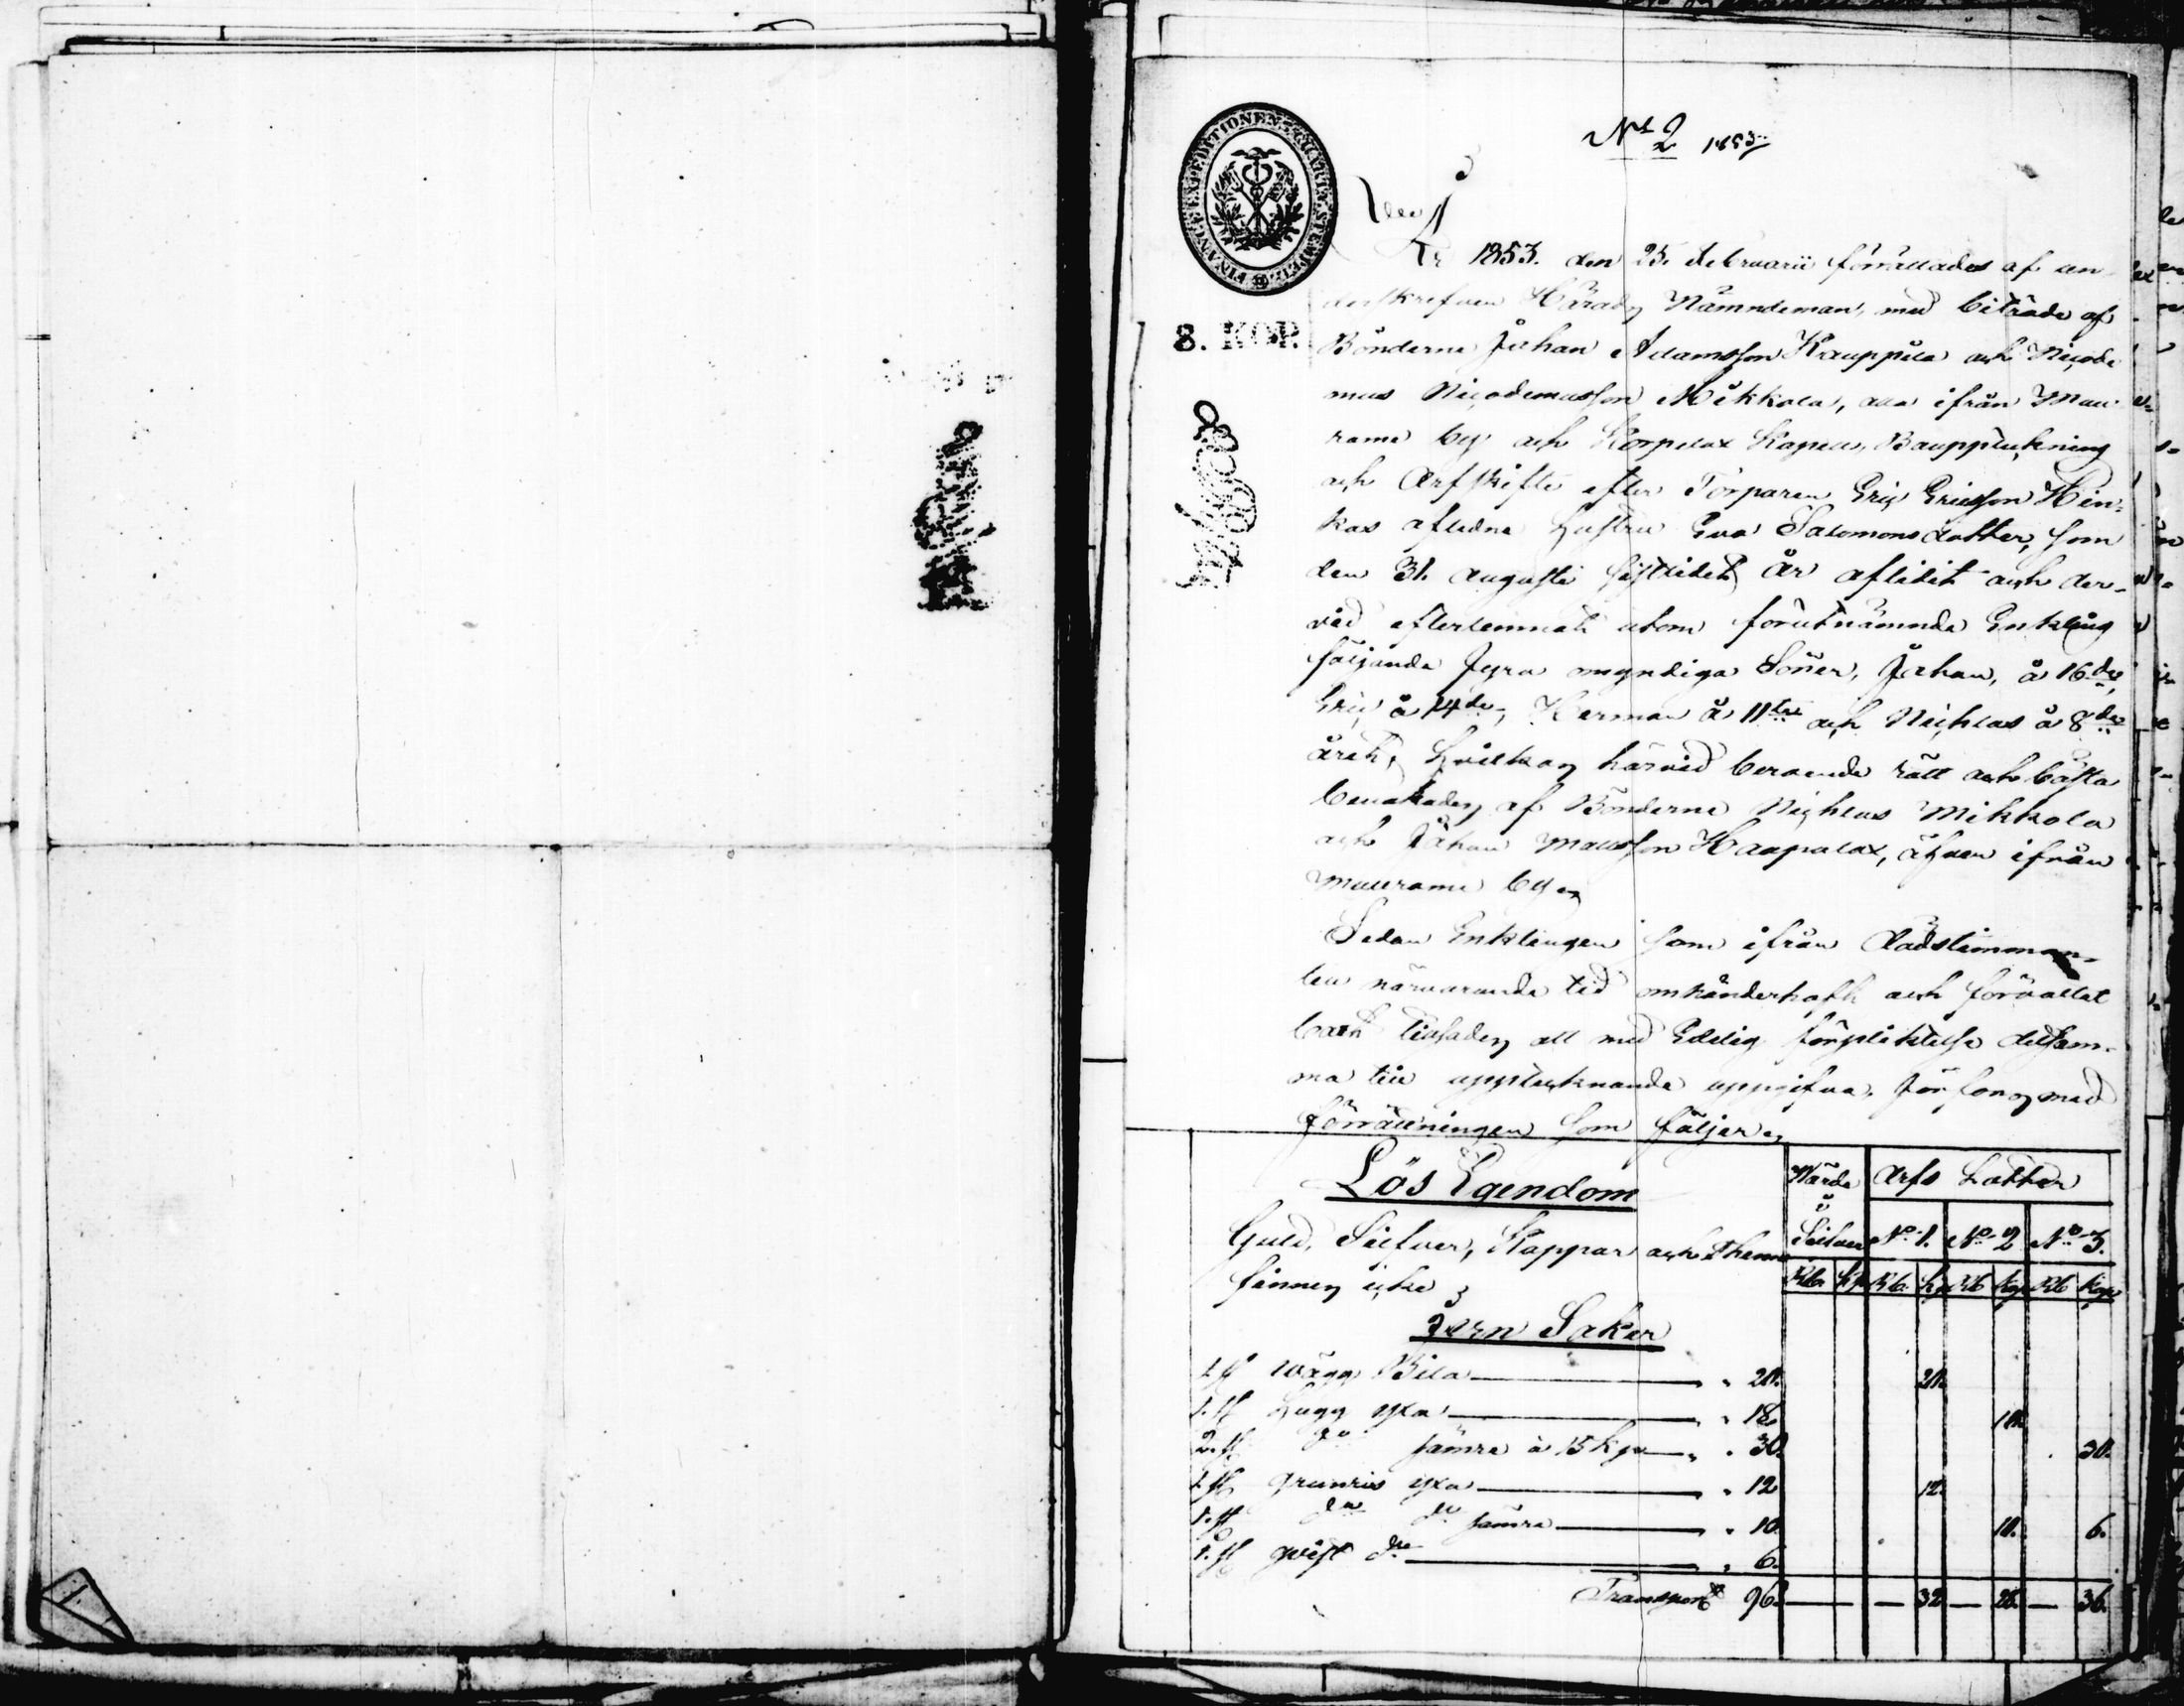 N: 2 1853
FINANCE EXPEDITIONEN CHARTÆ STEMPEL
8. KOP.
År 1853. den 25. Februarii förrättades af un-
dertkrefven Härads Nämndeman, med biträde af
Bönderne Johan Adamsson Kauppila och Nicode
mus Nicodemusson Mikkola, alla ifrån Mau-
rama by och Korpelax Kapell, Bouppteckning
och Arfskifte efter Torparen Eric Ericsson Hin-
kas afledne hustru Eva Salomonsdotter, som
den 31. Augusti sistledet år aflidit och der-
vid efterlemnat utom förutnämnde Enkling
följande fyra omyndiga Söner, Johan, å 16de
Eric å 14de, Herman å 11te och Nichlas å 8de
året, hvilkas härvid beroende rätt och bästa
bevakades af Bönderne Nichlas Mikkola
och Johan Mattsson Haapalax, äfven ifrån
Maurama by
Sedan Enklingen som ifrån dödstimman
till närvarande tid omhänderhaft och förvaltat
boet tillsades att med Edelig förpliktelse detsam-
ma till upptecknande uppgifva, förfors med
förrättningen som följer
Lös Egendom
Wärde i Silfver
Arfs Lotter
No 1. No 2 No 3.
Rb. kp Rb. kp Rb kop Rb kop
Guld, Silfver, Koppar och Thenn
finnes icke
Jern Saker
1. st wägg Bila " 20. 20.
1. st hugg yxa " 18. 18.
2. st do sämre à 15 kp " 30. 30.
1. st yxa " 12 12.
1. st do do sämre " 10. 10.
1. st qvist do " 6. 6.
Transport 96. — — — 32 — 28. — 36.